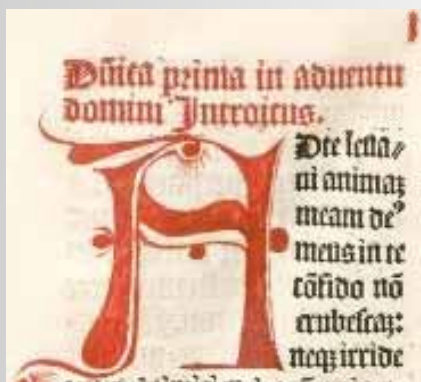 Dñica prima in aduentu
domini Introitus.
A
D te leua/
ui animaʒ
meam de⁹
meus in te
cōfido nō
erubescaʒ:
neqʒ irride